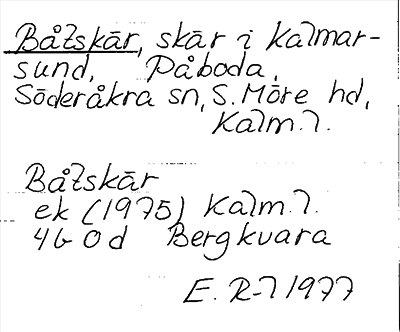 Båtskär, skär i Kalmar-
sund, Påboda,
Söderåkra sn, S. Möre hd,
Kalm. l.
Båtskär
ek (1975) Kalm. l.
4G 0d Bergkvara
E. R-l 1977